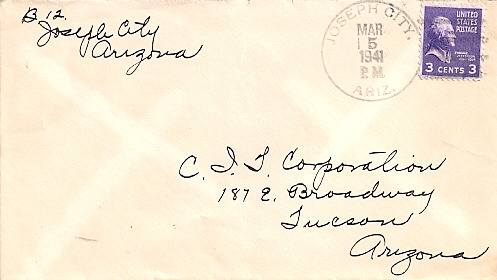 B 12.
Joseph City
Arizona
JOSEPH CITY,
MAR
5
1941
P.M.
ARIZ.
UNITED
STATES
POSTAGE
3 CENTS 3
C. I. T. Corporation
187 E. Broadway
Tucson
Arizona